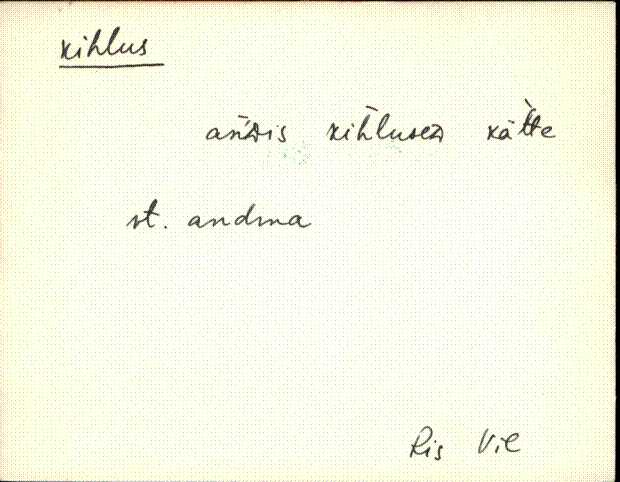 kihlus
andis kihlused kätte
vt. andma
Ris Vil